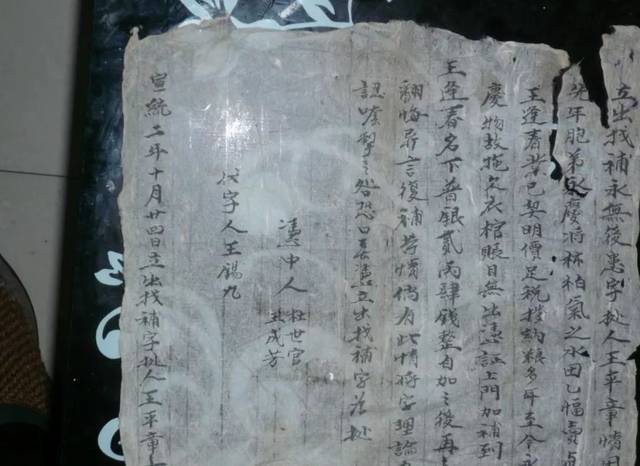 立出找補永無後患字抴人王平章情因
先年胞弟 慶將 柏 之水田乙幅
王逢春 已契明價足税 糧多年至今
慶物故拖欠衣棺賬目無出憑証上門加補到
王逢春名下普銀貳両肆錢整自加之後再
翻悔異言復補苦情倘有此情将字理論
認 之咎恐口無憑立出找補字為抴
憑中人 杜世官
王成芳
代字人王錫九
宣統二年十月廿四日立出找補字抴人王平章